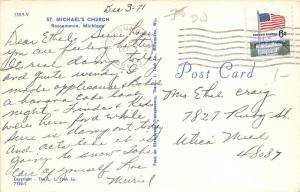 Dec 3-71
1355-V
ST. MICHAEL'S CHURCH
Roscommon, Michigan
Dear Ethel: Sure hope
you are feeling better.
It real damp today
and quite windy. I
made applesauce & baked
a banana cake last
night. Linda & kids
were here for a while.
Sure is damp out today
and acts like it
going to snow. Take
care of yourself Love
Muriel
Copyright - The L. L. Cook Co.
Post Card
UNITED STATES
6¢
Mrs Ethel Craig
7827 Ruby St
Utica Mich
48087